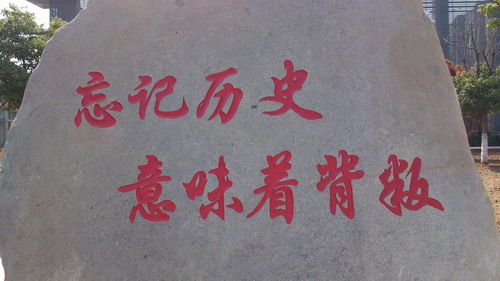 忘记历史
意味着背叛